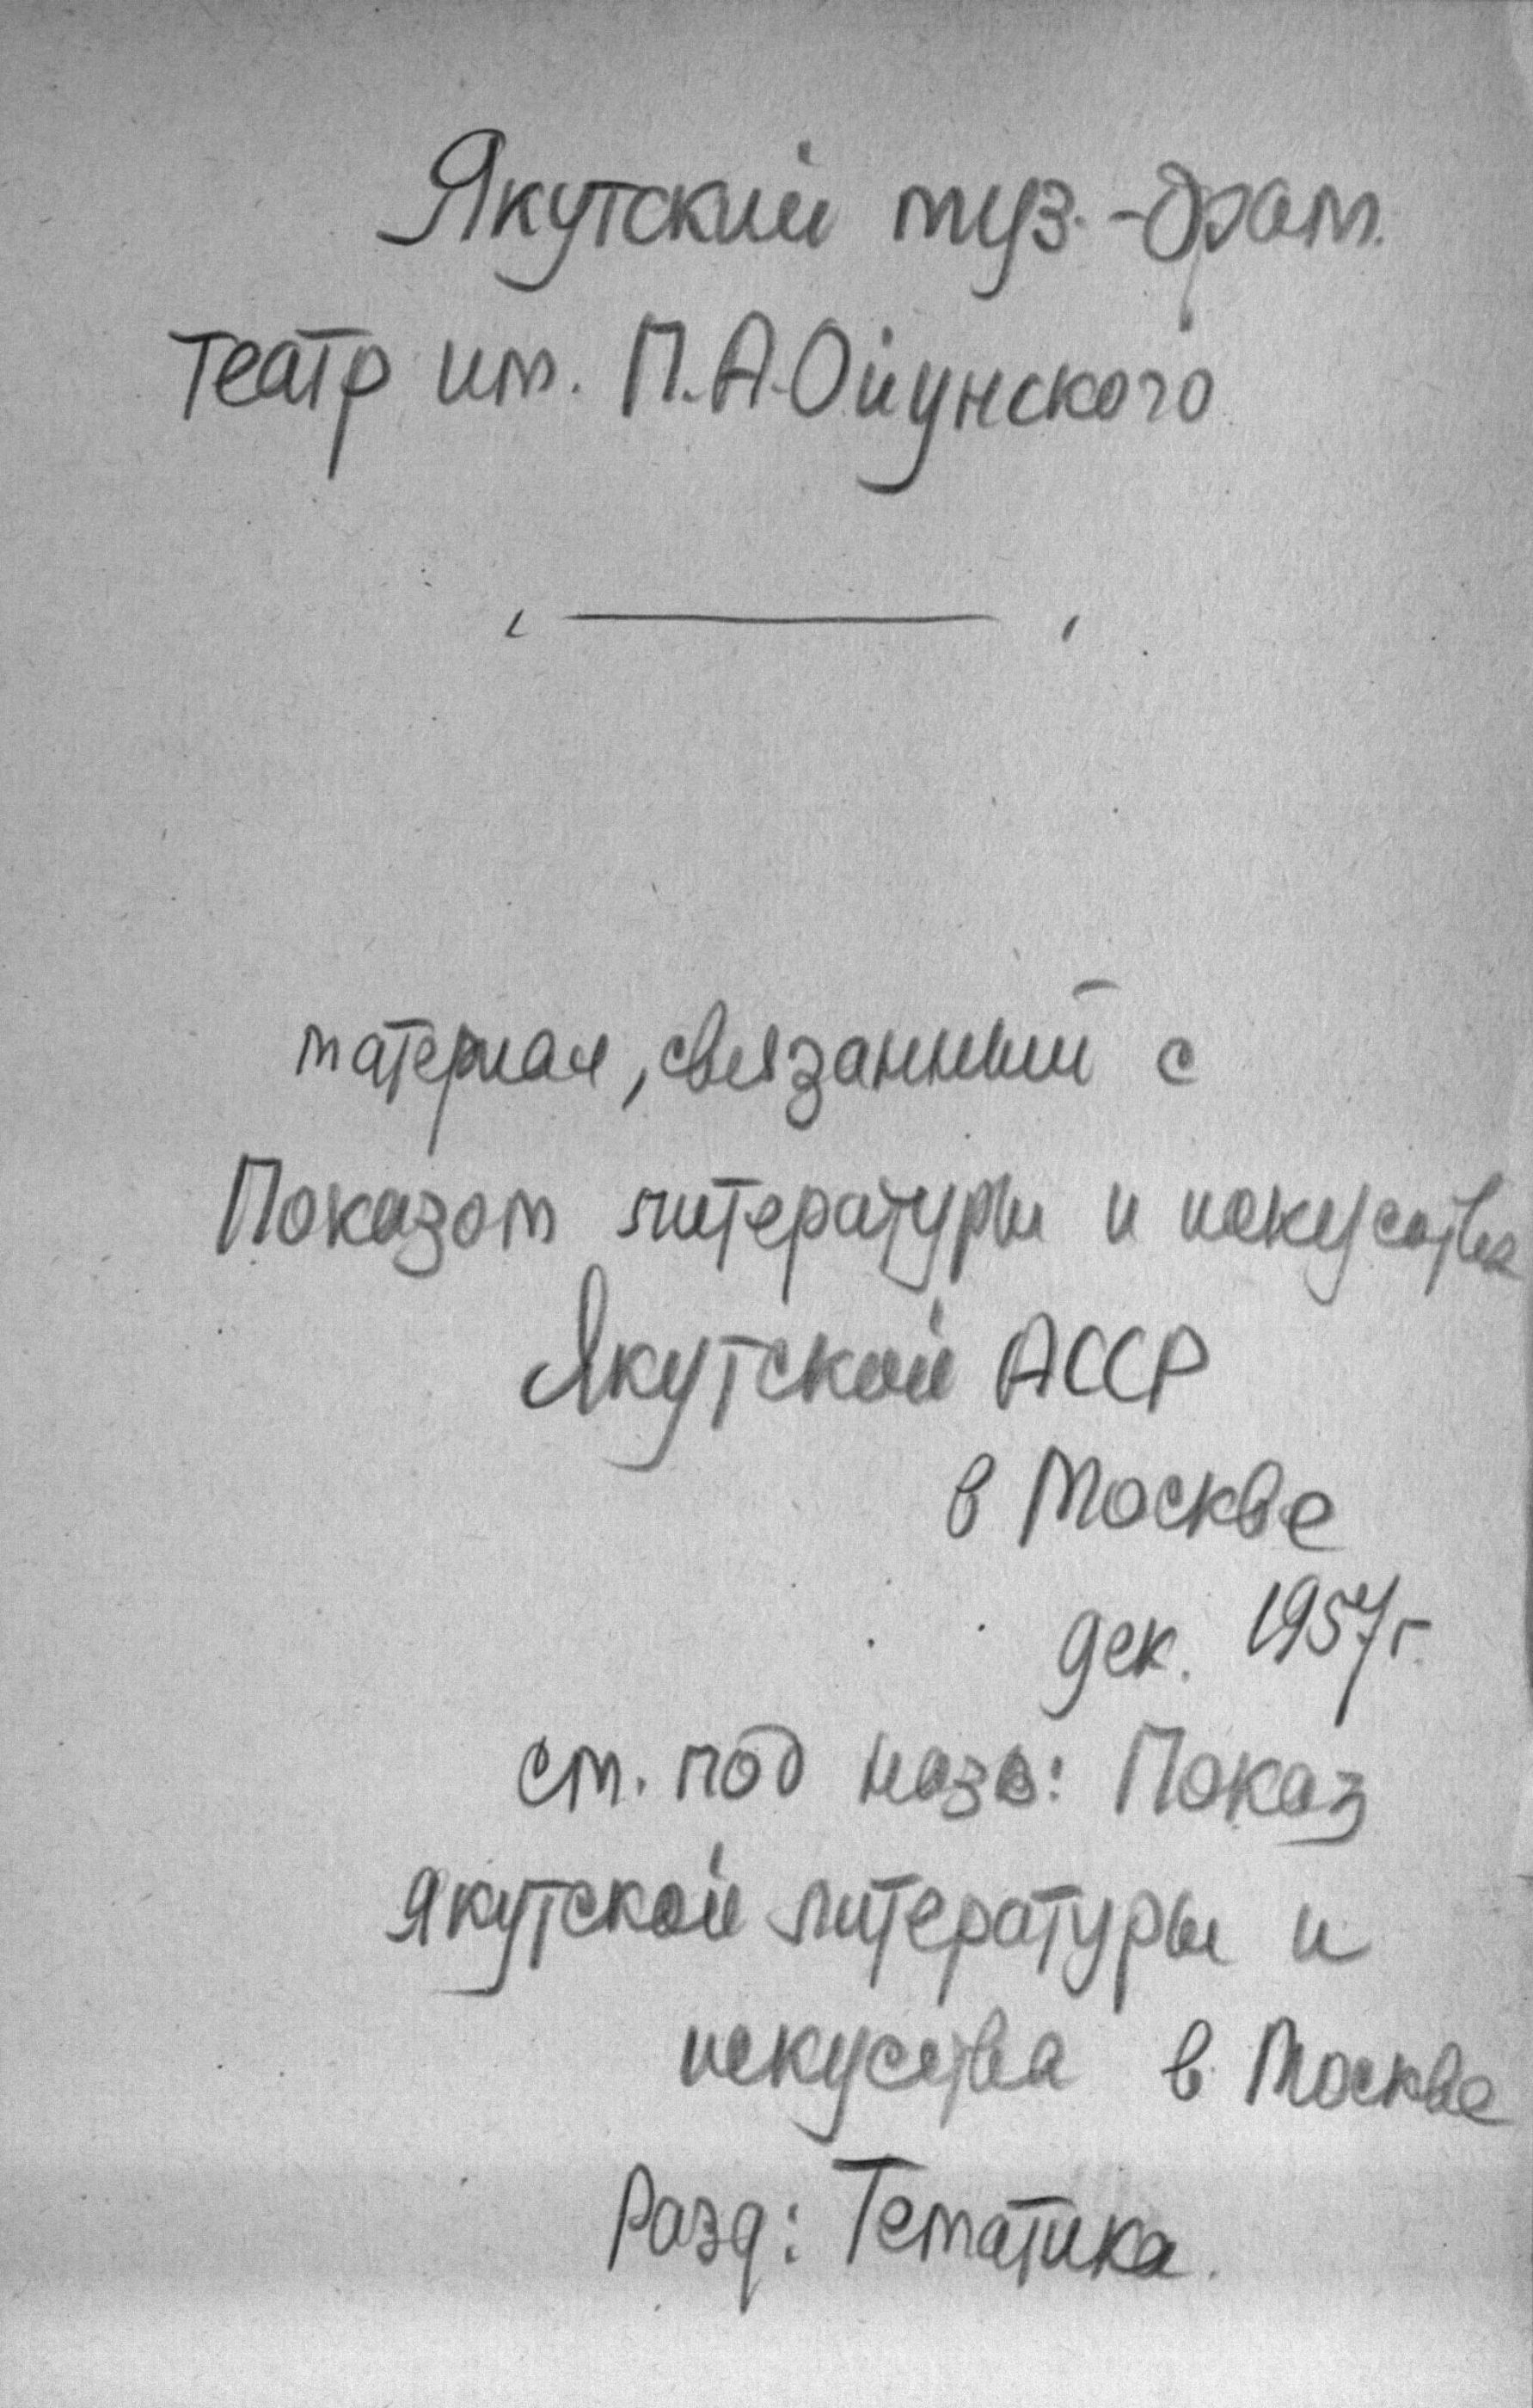 Якутский муз.-драм.
театр им. П.А.Ойунского
материал, связанный с
Показом литературы и искусства
Якутской АССР
в Москве
дек. 1957г.
см. под назв: Показ
якутской литературы и
искусства в Москве
Разд: Тематика.